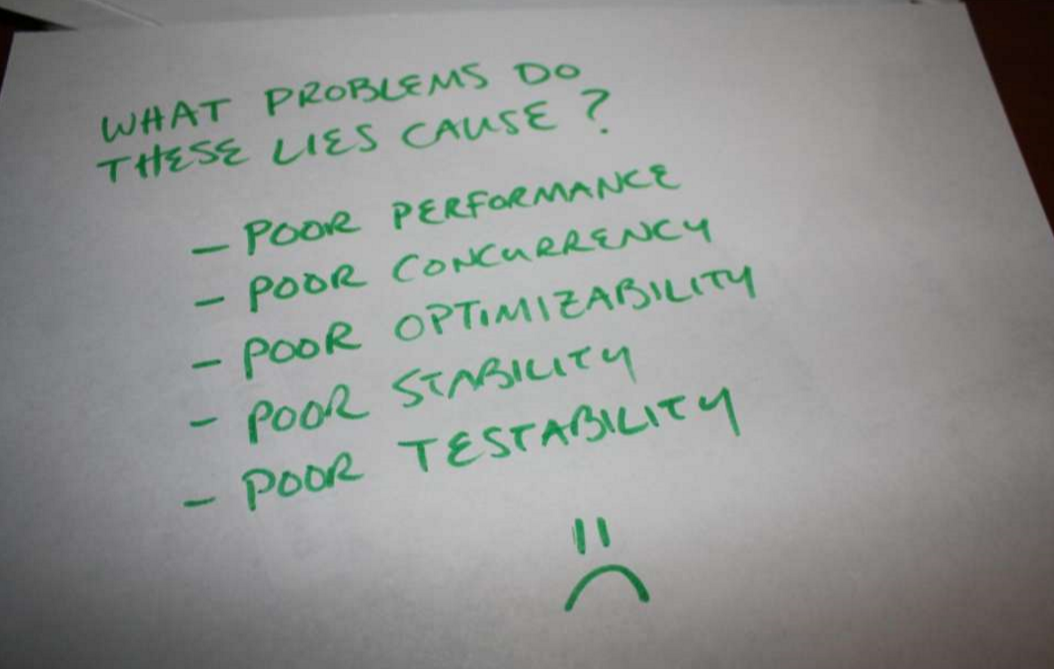 WHAT PROBLEMS DO
THESE LIES CAUSE?
- POOR PERFORMANCE
- POOR CONCURRENCY
- POOR OPTIMIZABILITY
- POOR STABILITY
- POOR TESTABILITY